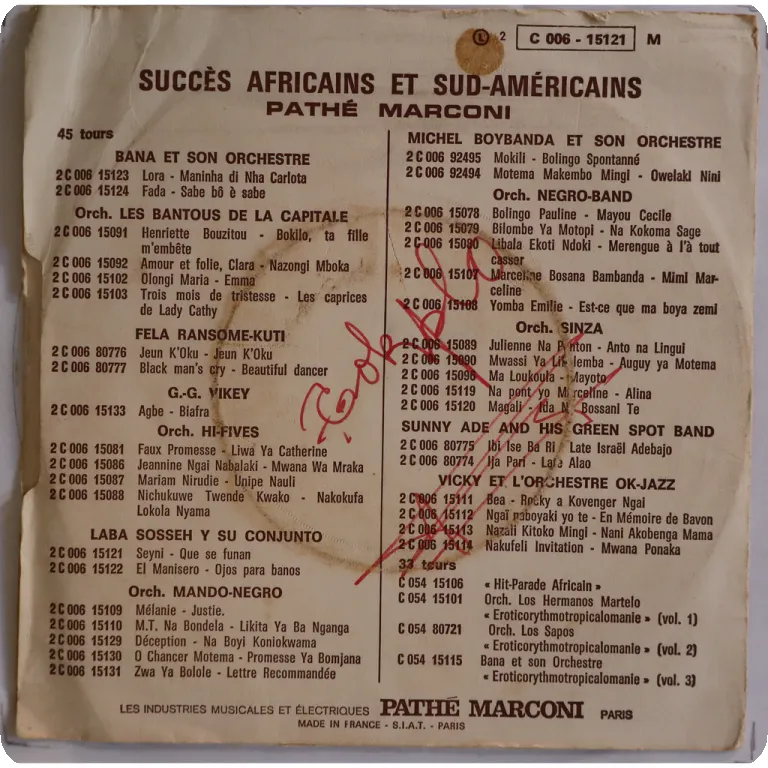 Ⓛ 2 C 006 - 15121 M
SUCCÈS AFRICAINS ET SUD-AMÉRICAINS
PATHÉ MARCONI
45 tours
BANA ET SON ORCHESTRE
2 C 006 15123 Lora - Maninha di Nha Carlota
2 C 006 15124 Fada - Sabe bô è sabe
Orch. LES BANTOUS DE LA CAPITALE
2 C 006 15091 Henriette Bouzitou - Bokilo, ta fille
m'embête
2 C 006 15092 Amour et folie, Clara - Nazongi Mboka
2 C 006 15102 Olongi Maria - Emma
2 C 006 15103 Trois mois de tristesse - Les caprices
de Lady Cathy
FELA RANSOME-KUTI
2 C 006 80776 Jeun K'Oku - Jeun K'Oku
2 C 006 80777 Black man's cry - Beautiful dancer
G.-G. VIKEY
2 C 006 15133 Agbe - Biafra
Orch. HI-FIVES
2 C 006 15081 Faux Promesse - Liwa Ya Catherine
2 C 006 15086 Jeannine Ngai Nabalaki - Mwana Wa Mraka
2 C 006 15087 Mariam Nirudie - Unipe Nauli
2 C 006 15088 Nichukuwe Twende Kwako - Nakokufa
Lokola Nyama
LABA SOSSEH Y SU CONJUNTO
2 C 006 15121 Seyni - Que se funan
2 C 006 15122 El Manisero - Ojos para banos
Orch. MANDO-NEGRO
2 C 006 15109 Mélanie - Justie.
2 C 006 15110 M.T. Na Bondela - Likita Ya Ba Nganga
2 C 006 15129 Déception - Na Boyi Koniokwama
2 C 006 15130 O Chancer Motema - Promesse Ya Bomjana
2 C 006 15131 Zwa Ya Bolole - Lettre Recommandée
MICHEL BOYBANDA ET SON ORCHESTRE
2 C 006 92495 Mokili - Bolingo Spontanné
2 C 006 92494 Motema Makembo Mingi - Owelaki Nini
Orch. NEGRO-BAND
2 C 006 15078 Bolingo Pauline - Mayou Cecile
2 C 006 15079 Bilombe Ya Motopi - Na Kokoma Sage
2 C 006 15080 Libala Ekoti Ndoki - Merengue à l'à tout
casser
2 C 006 15107 Marceline Bosana Bambanda - Mimi Mar-
celine
2 C 006 15108 Yomba Emilie - Est-ce que ma boya zemi
Orch. SINZA
2 C 006 15089 Julienne Na - Anto na Lingui
2 C 006 15090 Mwassi Ya - Auguy ya Motema
2 C 006 15096 Ma Loukoula - Mayoto
2 C 006 15119 Na pont yo Marceline - Alina
2 C 006 15120 Magali - Bossani Te
SUNNY ADE AND HIS GREEN SPOT BAND
2 C 006 80775 Ibi Ise Ba Ri - Late Israël Adebajo
2 C 006 80774 Ija Pari - Lale Alao
VICKY ET L'ORCHESTRE OK-JAZZ
2 C 006 15111 Bea - Rocky a Kovenger Ngai
2 C 006 15112 Ngaï naboyaki yo te - En Mémoire de Bavon
2 C 006 15113 Nazali Kitoko Mingi - Nani Akobenga Mama
2 C 006 15114 Nakufeli Invitation - Mwana Ponaka
33 tours
C 054 15106 « Hit-Parade Africain »
C 054 15101 Orch. Los Hermanos Martelo
« Eroticorythmotropicalomanie » (vol. 1)
C 054 80721 Orch. Los Sapos
« Eroticorythmotropicalomanie » (vol. 2)
C 054 15115 Bana et son Orchestre
« Eroticorythmotropicalomanie » (vol. 3)
LES INDUSTRIES MUSICALES ET ÉLECTRIQUES PATHÉ MARCONI PARIS
MADE IN FRANCE - S.I.A.T. - PARIS